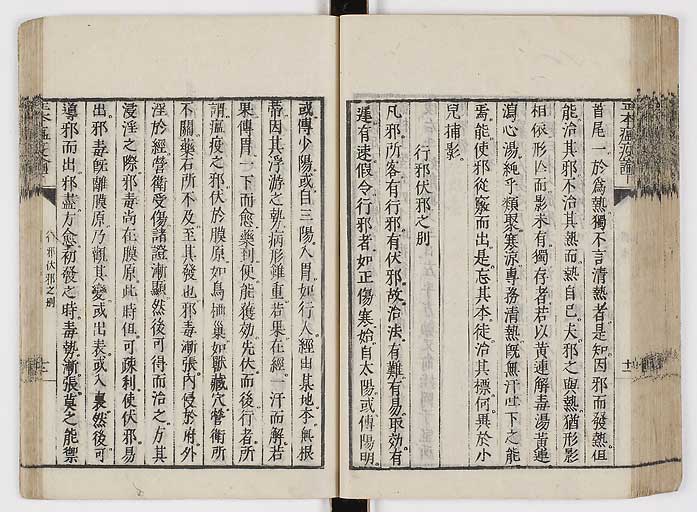 首尾一於為熱獨不言清熱者是知因邪而發熱但
能治其邪不治其熱而熱自已夫邪之與熱猶形影
相依形亡而影未有獨存者若以黃連解毒湯黃連
瀉心湯純乎類聚寒涼專務清熱既無汗吐下之能
焉能使邪從竅而出是忘其本徒治其標何異於小
兒捕影
行邪伏邪之別
凡邪所客有行邪有伏邪故治法有難有易取効有
遲有速假令行邪者如正傷寒始自太陽或傳陽明
或傳少陽或自三陽入胃如行人經由某地本無根
蒂因其浮游之勢病形雖重若果在經一汗而解若
果傳胃一下而愈藥到便能獲効先伏而後行者所
謂瘟疫之邪伏於膜原如鳥栖巢如獸藏穴營衛所
不關藥石所不及至其發也邪毒漸張內侵於府外
淫於經營衛受傷諸證漸顯然後可得而治之方其
浸淫之際邪毒尚在膜原此時但可疎利使伏邪易
出邪毒既離膜原乃觀其變或出表或入裏然後可
導邪而出邪盡方愈初發之時毒勢漸張莫之能禦
行邪伏邪之別